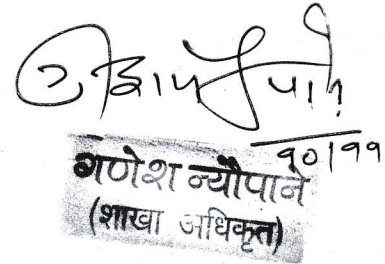 १०/११
गणेश न्यौपाने
(शाखा अधिकृत)